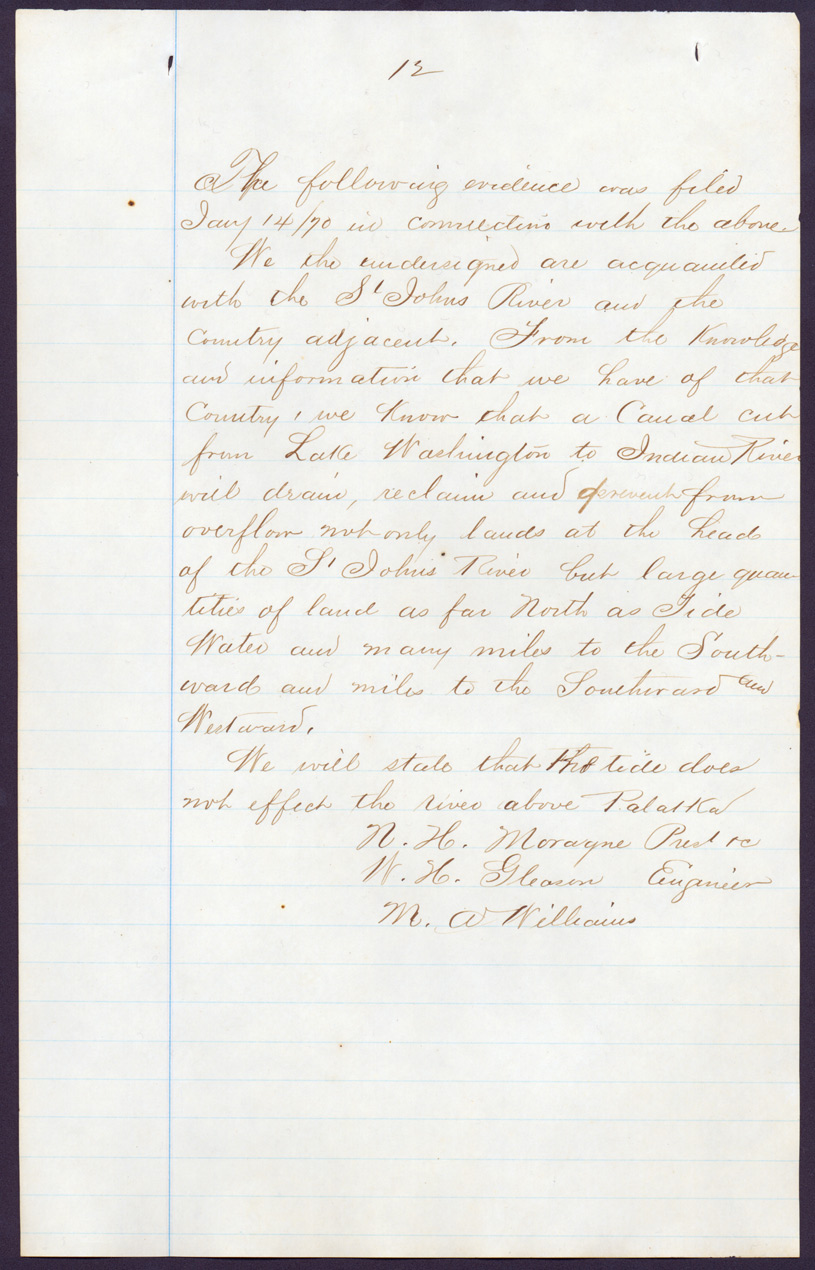 12
The following evidence was filed
Jany 14/70 in connection with the above.
We the undersigned are acquanited
with the St Johns River and the
Country adjacent. From the Knowledge
and information that we have of that
Country, we Know that a Canal cut
from Lake Washington to Indian River
will drain, reclaim and prevent from
overflow not only lands at the head
of the St Johns River but large quan
tities of land as far North as Tide
Water and many miles to the South-
ward and miles to the Southward and
Westward.
We will state that the tide does
not effect the river above Palatka
N. H. Moragne Prest &c
W. H. Gleason Engineer
M. A Williams